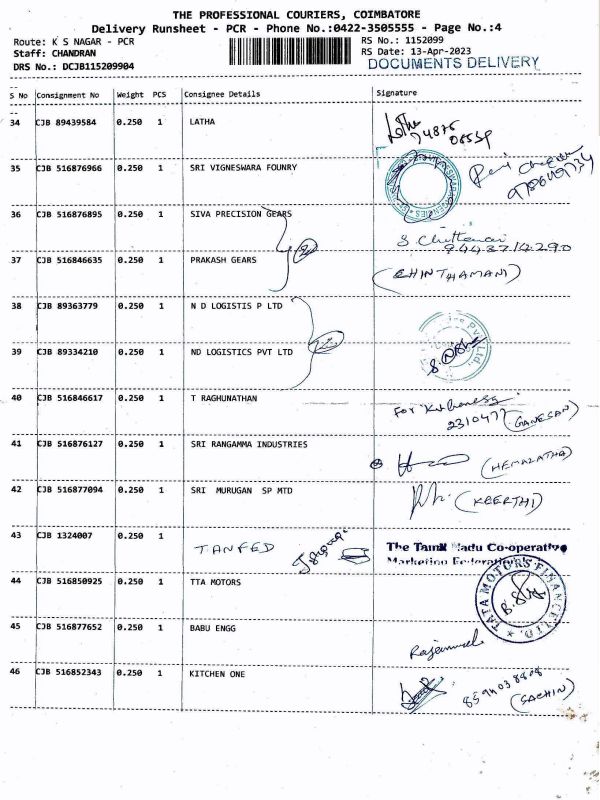 THE PROFESSIONAL COURIERS, COIMBATORE
Delivery Runsheet - PCR - Phone No.:0422-3505555 - Page No.:4
Route: K S NAGAR - PCR
RS No.: 1152099
Staff: CHANDRAN
RS Date: 13-Apr-2023
DRS No.: DCJB115209904
DOCUMENTS DELIVERY
S No Consignment No Weight PCS Consignee Details Signature
34 CJB 89439584 0.250 1 LATHA
Latha
35 CJB 516876966 0.250 1 SRI VIGNESWARA FOUNRY
36 CJB 516876895 0.250 1 SIVA PRECISION GEARS
9443714290
37 CJB 516846635 0.250 1 PRAKASH GEARS
2
(CHINTHAMANI)
38 CJB 89363779 0.250 1 N D LOGISTIS P LTD
39 CJB 89334210 0.250 1 ND LOGISTICS PVT LTD
2
40 CJB 516846617 0.250 1 T RAGHUNATHAN
For
2310477 (GANESAN)
41 CJB 516876127 0.250 1 SRI RANGAMMA INDUSTRIES
(HEMALATHA)
42 CJB 516877094 0.250 1 SRI MURUGAN SP MTD
(KEERTHI)
43 CJB 1324007 0.250 1
TANFED
The Tamil Nadu Co-operative
Marketing Federation
44 CJB 516850925 0.250 1 TTA MOTORS
TATA MOTORS FINANCE LTD.
45 CJB 516877652 0.250 1 BABU ENGG
46 CJB 516852343 0.250 1 KITCHEN ONE
(SACHIN)